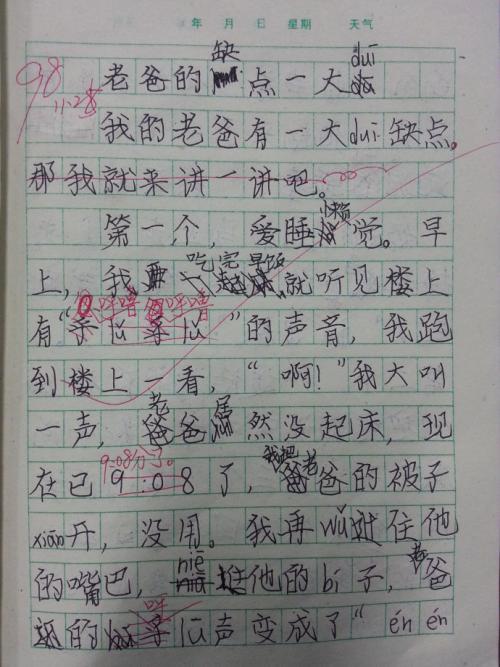 年 月 日 星期 天气
98
11.28
老爸的缺点一大duī
我的老爸有一大duī缺点。
那我就来讲一讲吧。
第一个，爱睡懒觉。早
上，我吃完早饭就听见楼上
呼噜 呼噜
有“乎lū乎lū”的声音，我跑
到楼上一看，“啊！”我大叫
一声，老爸居然没起床，现
9:08分了。
在已9:08了，我把老爸的被子
xiān开，没用。我再wǔ住他
的嘴巴，niē他的bí子，老爸
呼
的乎lū声变成了“én én